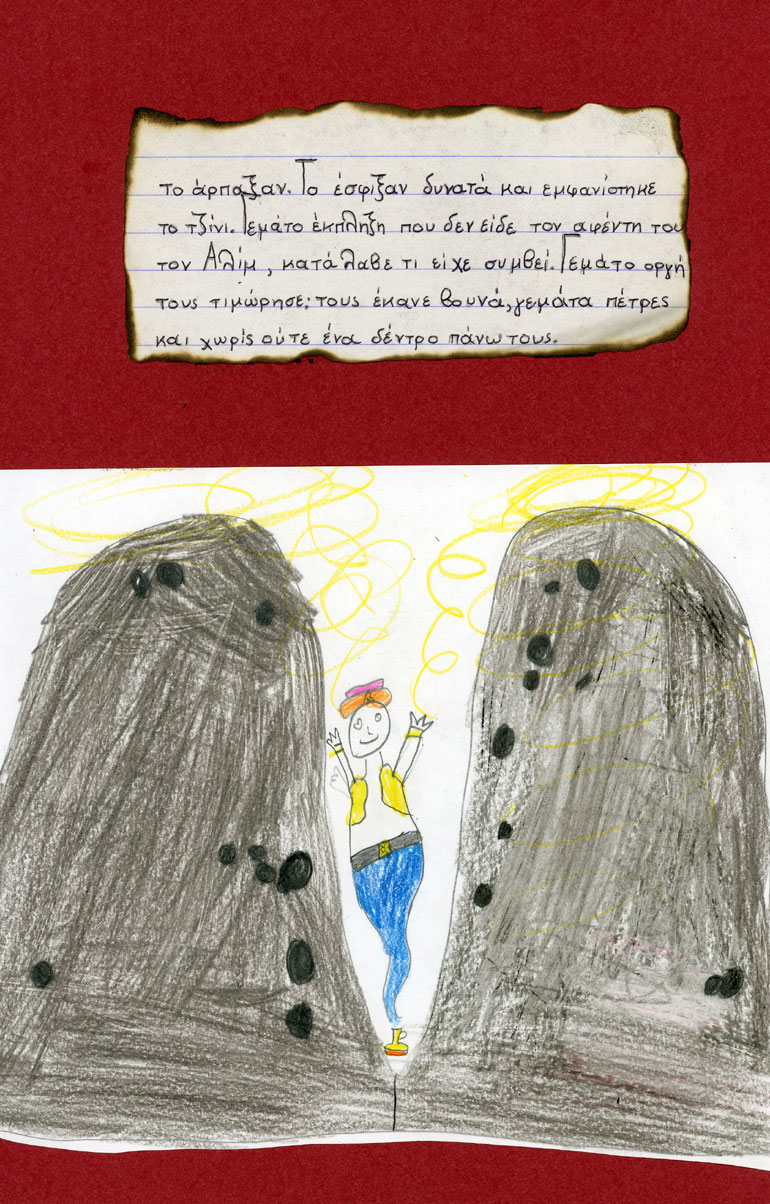 το άρπαξαν. Το έσφιξαν δυνατά και εμφανίστηκε
το τζίνι. Γεμάτο έκπληξη που δεν είδε τον αφέντη του
τον Αλίμ, κατάλαβε τι είχε συμβεί. Γεμάτο οργή
τους τιμώρησε: τους έκανε βουνά, γεμάτα πέτρες
και χωρίς ούτε ένα δέντρο πάνω τους.